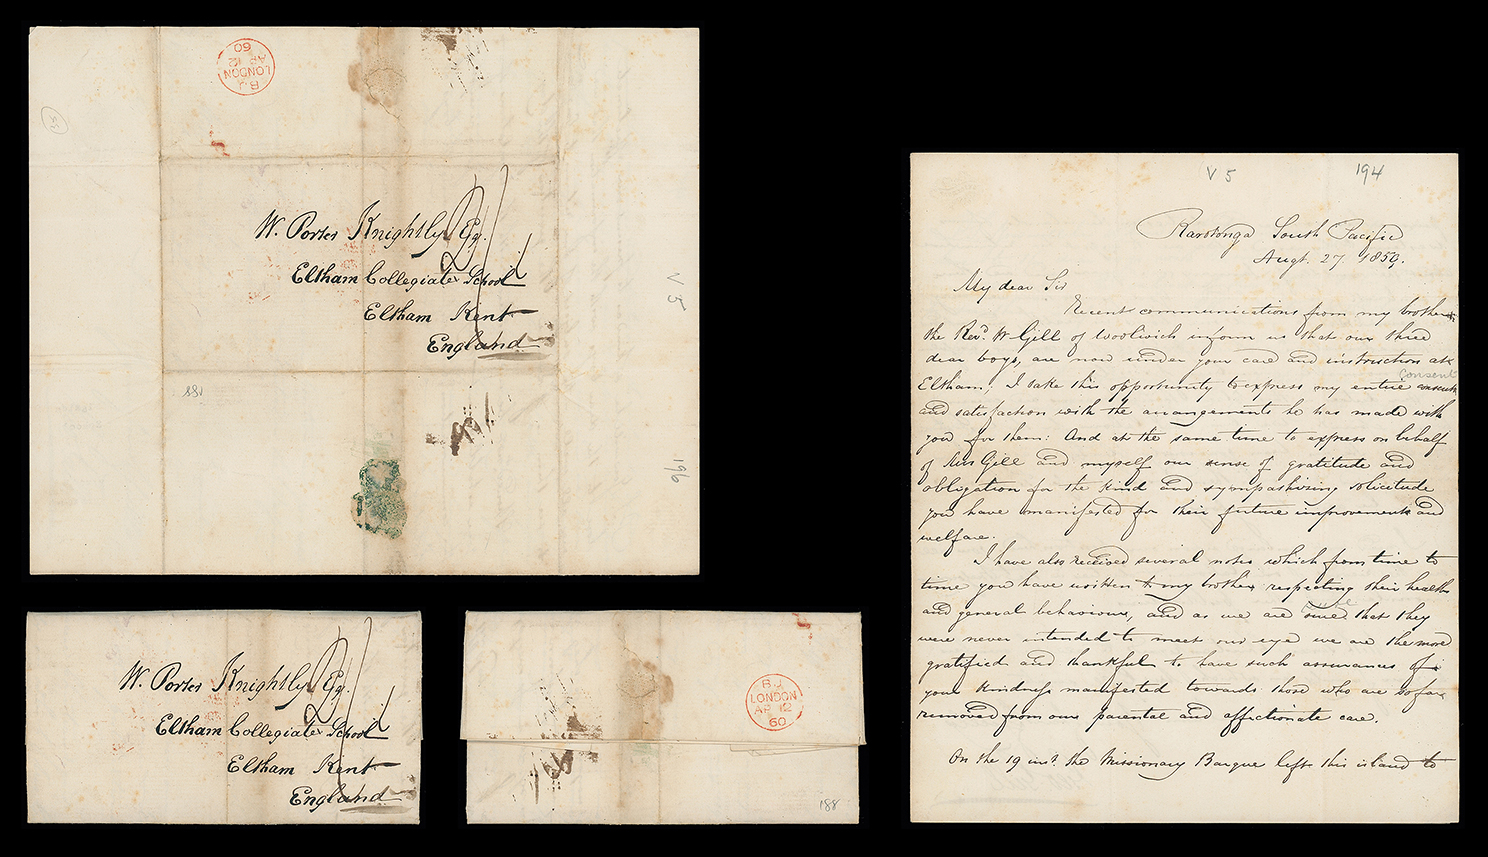 60
AP 12
LONDON
B.J
W. Porter Knightly Esq.
Eltham Collegiate School
Eltham Kent
England
V 5
196
188
W. Porter Knightly Esq.
Eltham Collegiate School
Eltham Kent
England
B.J
LONDON
AP 12
60
188
V 5 194
Rarotonga South Pacific
Augt. 27 1859.
My dear Sir
Recent communications from my brother
the Revd. W Gill of Woolwich inform us that our three
dear boys, are now under your care and instruction at
consent
Eltham; I take this opportunity to express my entire
and satisfaction with the arrangements he has made with
you for them: And at the same time to express on behalf
of Mrs Gill and myself our sense of gratitude and
obligation for the kind and sympathising solicitude
you have manifested for their future improvement and
welfare.
I have also received several notes which from time to
time you have written to my brother respecting their health
and general behaviour, and as we are that they
were never intended to meet our eye we are the more
gratified and thankful to have such assurances of
your kindness manifested towards those who are so far
removed from our parental and affectionate care.
On the 19 inst the Missionary Barque left this island to